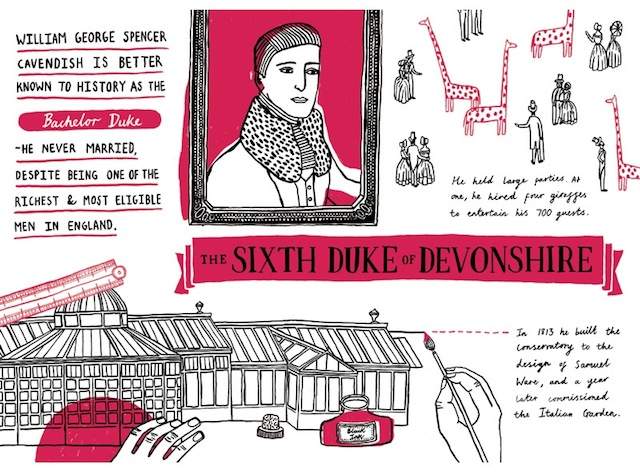 WILLIAM GEORGE SPENCER
CAVENDISH IS BETTER
KNOWN TO HISTORY AS THE
Bachelor Duke
-HE NEVER MARRIED,
DESPITE BEING ONE OF THE
RICHEST & MOST ELIGIBLE
MEN IN ENGLAND.
He held large parties. At
one, he hired four giraffes
to entertain his 700 guests.
THE SIXTH DUKE OF DEVONSHIRE
In 1813 he built the
conservatory to the
design of Samuel
Ware, and a year
later commissioned
the Italian Garden.
Black
Ink